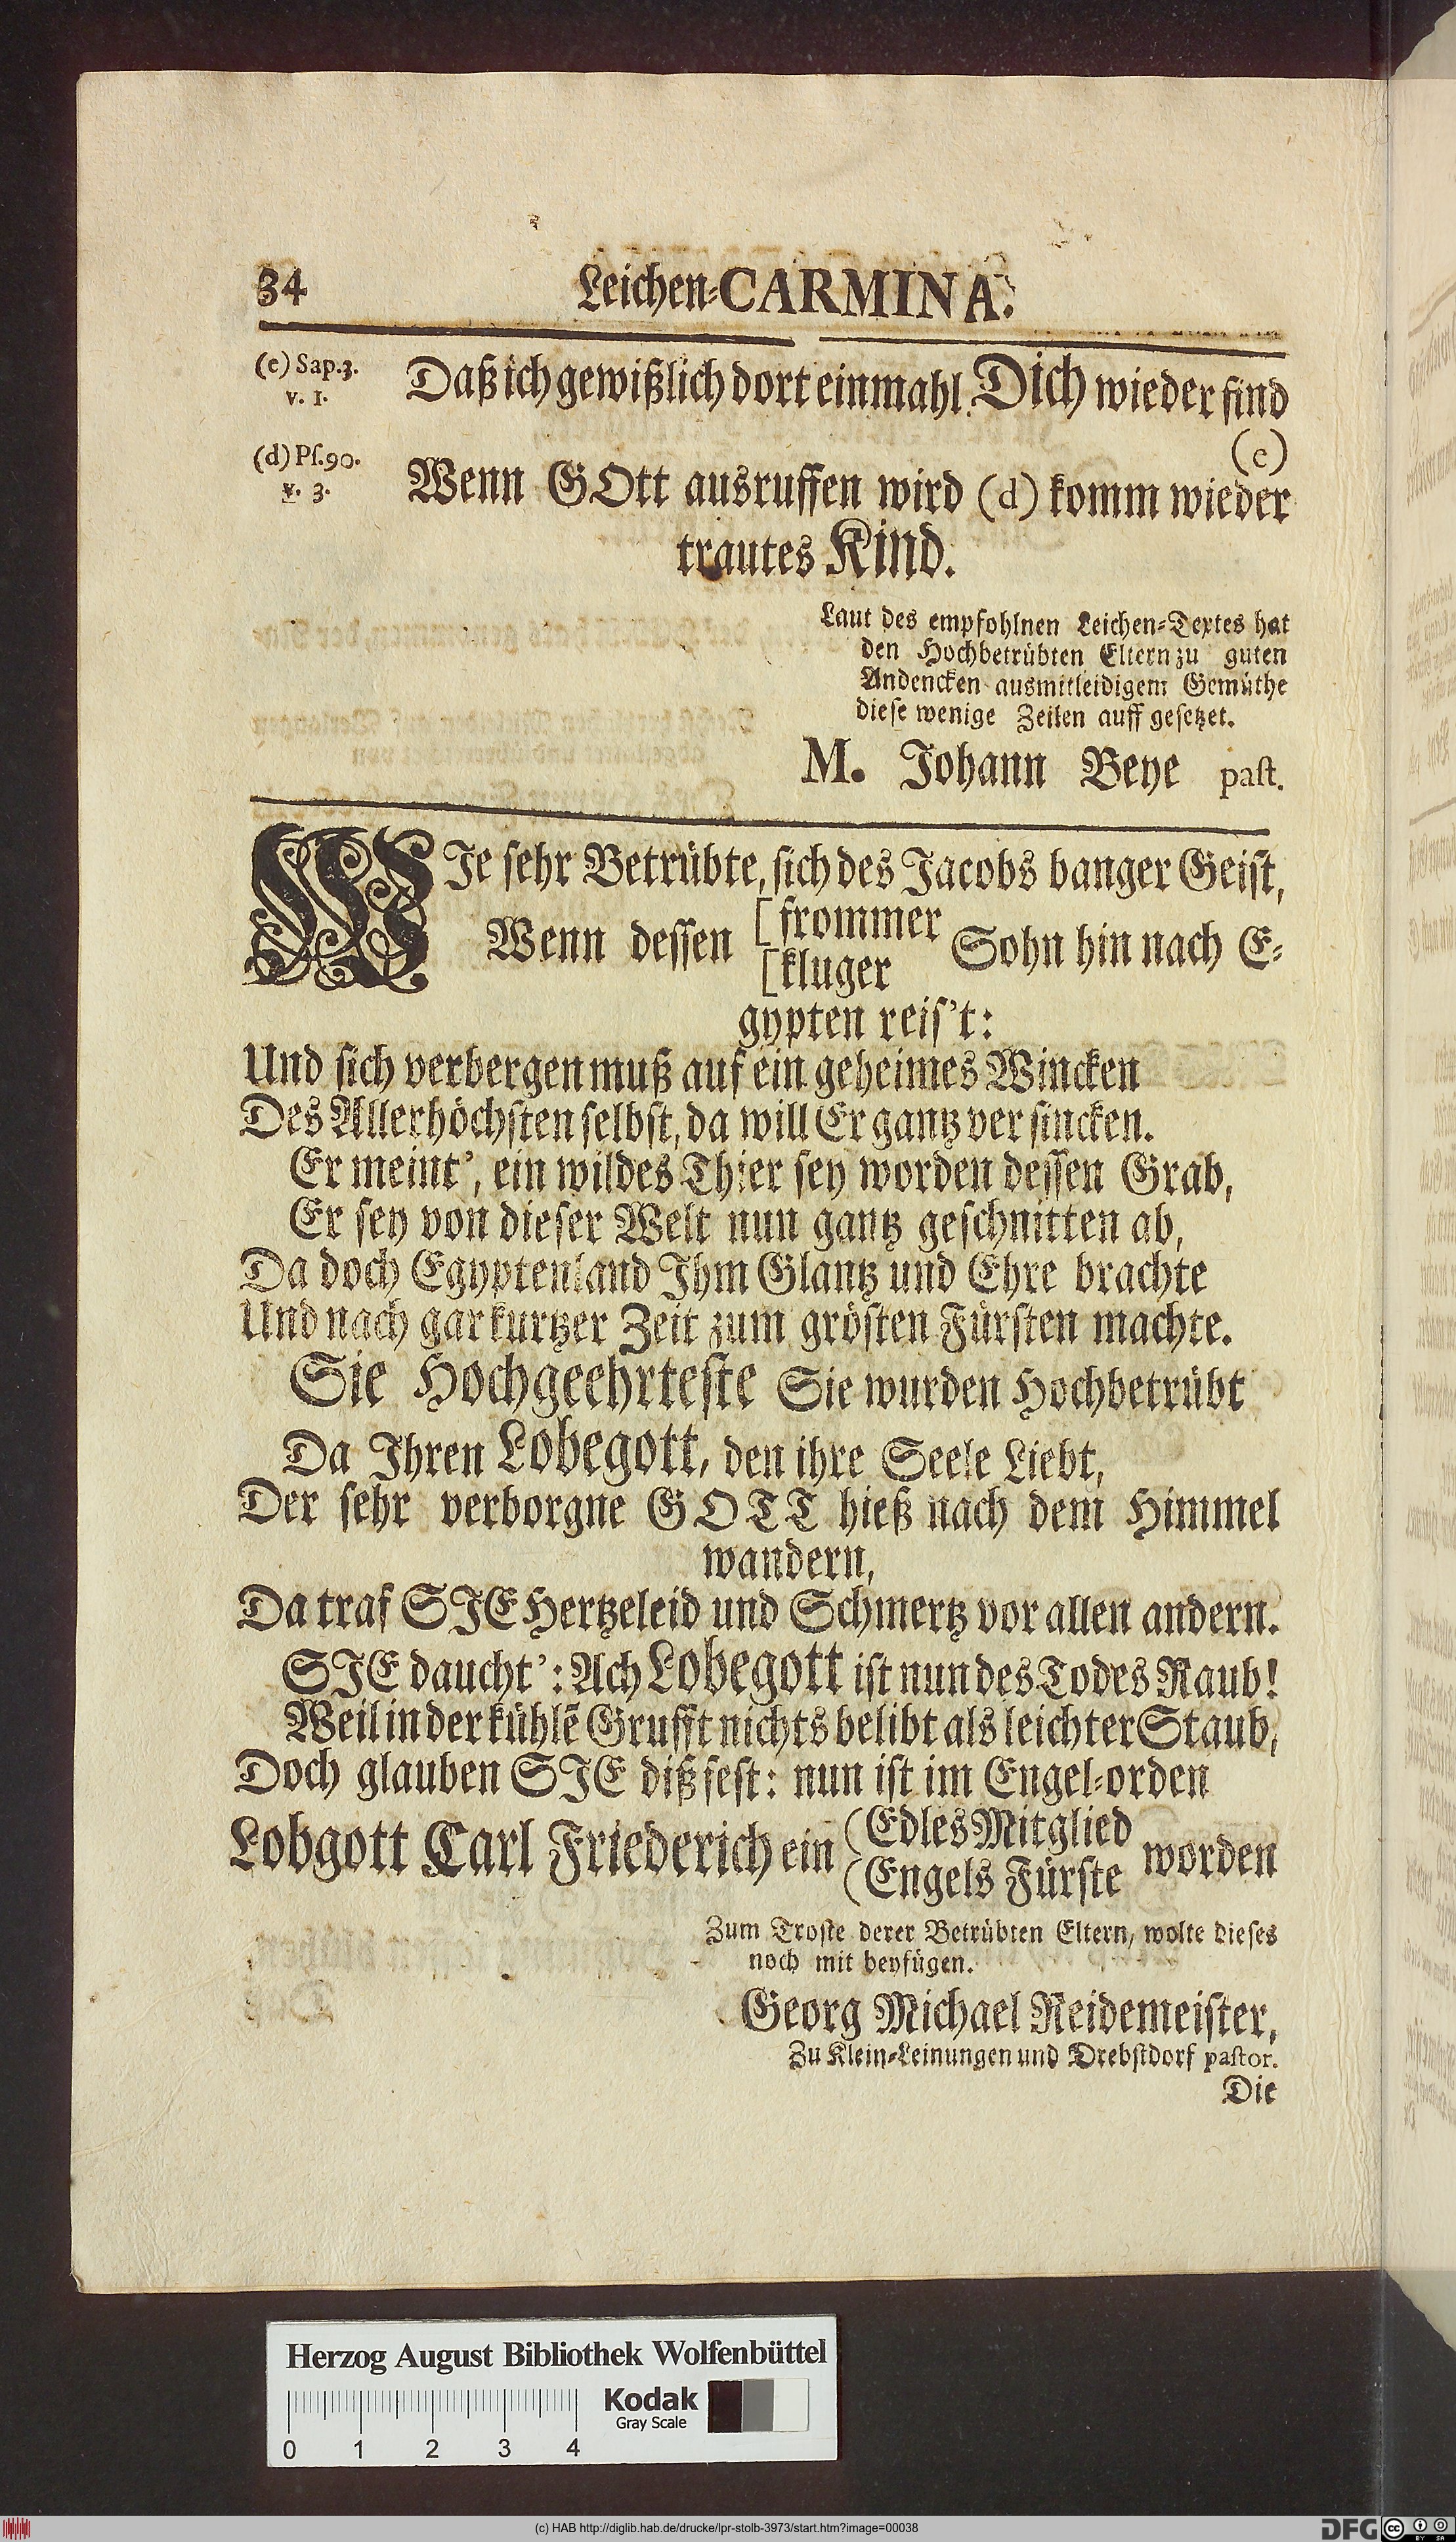 34 Leichen-CARMINA.
(c) Sap.3.
v. 1.
Daß ich gewißlich dort einmahl Dich wieder find
(c)
(d) Pſ.90.
v. 3.
Wenn GOtt ausruffen wird (d) komm wieder
trautes Kind.
Laut des empfohlnen Leichen-Textes hat
den Hochbetrübten Eltern zu guten
Andencken aus mitleidigem Gemüthe
dieſe wenige Zeilen auff geſetzet.
M. Johann Beye paſt.
WIe ſehr Betrübte, ſich des Jacobs banger Geiſt,
Wenn deſſen [frommer
[kluger Sohn hin nach E-
gypten reiſ’t:
Und ſich verbergen muß auf ein geheimes Wincken
Des Allerhöchſten ſelbſt, da will Er gantz verſincken.
Er meint’, ein wildes Thier ſey worden deſſen Grab,
Er ſey von dieſer Welt nun gantz geſchnitten ab,
Da doch Egyptenland Ihm Glantz und Ehre brachte
Und nach gar kurtzer Zeit zum gröſten Fürſten machte.
Sie Hochgeehrteſte Sie wurden Hochbetrübt
Da Ihren Lobegott, den ihre Seele Liebt,
Der ſehr verborgne GOTT hieß nach dem Himmel
wandern,
Da traf SIE Hertzeleid und Schmertz vor allen andern.
SIE daucht’: Ach Lobegott iſt nun des Todes Raub!
Weil in der kühlē Grufft nichts belibt als leichter Staub,
Doch glauben SIE diß feſt: nun iſt im Engel-orden
Lobgott Carl Friederich ein (Edles Mitglied
(Engels Fürſte worden
Zum Troſte derer Betrübten Eltern, wolte dieſes
noch mit beyfügen.
Georg Michael Reidemeiſter,
Zu Klein-Leinungen und Drebſtdorf paſtor.
Die
Herzog August Bibliothek Wolfenbüttel
Kodak
Gray Scale
0 1 2 3 4
(c) HAB http://diglib.hab.de/drucke/lpr-stolb-3973/start.htm?image=00038
DFG